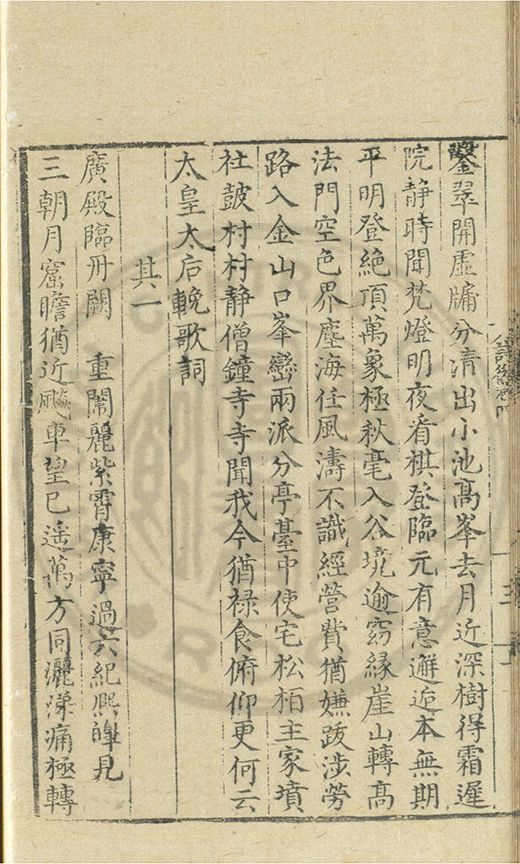 鑿翠開虛牖分清出小池高峯去月近深樹得霜遲
院靜時聞梵燈明夜看棋登臨元有意邂逅本無期
平明登絶頂萬象極秋毫入谷境逾窈緣崖山轉高
法門空色界塵海任風濤不識經營費猶嫌跋涉勞
路入金山口峯巒兩派分亭臺中使宅松栢主家墳
社鼓村村静僧鐘寺寺聞我今猶禄食俯仰更何云
太皇太后輓歌詞
其一
廣殿臨丹闕 重闈麗紫霄康寧過六紀熈皥見
三朝月窟瞻猶近飈車望已遥萬方同灑涕痛極轉